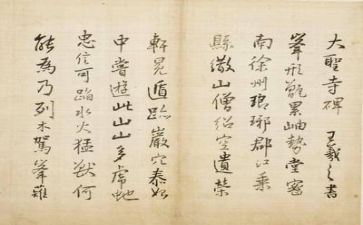 大聖寺碑 王羲之書
峯形甑累岫勢堂密
南徐州瑯琊郡江乘
縣繖山僧紹空遺榮
軒冕遁跡巖穴泰始
中嘗遊此山山多虎虵
忠信可蹈水火猛獸何
能為乃列木駕峯薙